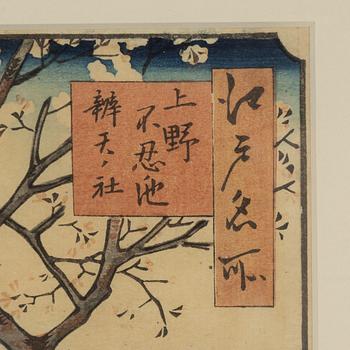 江戸名所
上野
不忍池
辨天ノ社